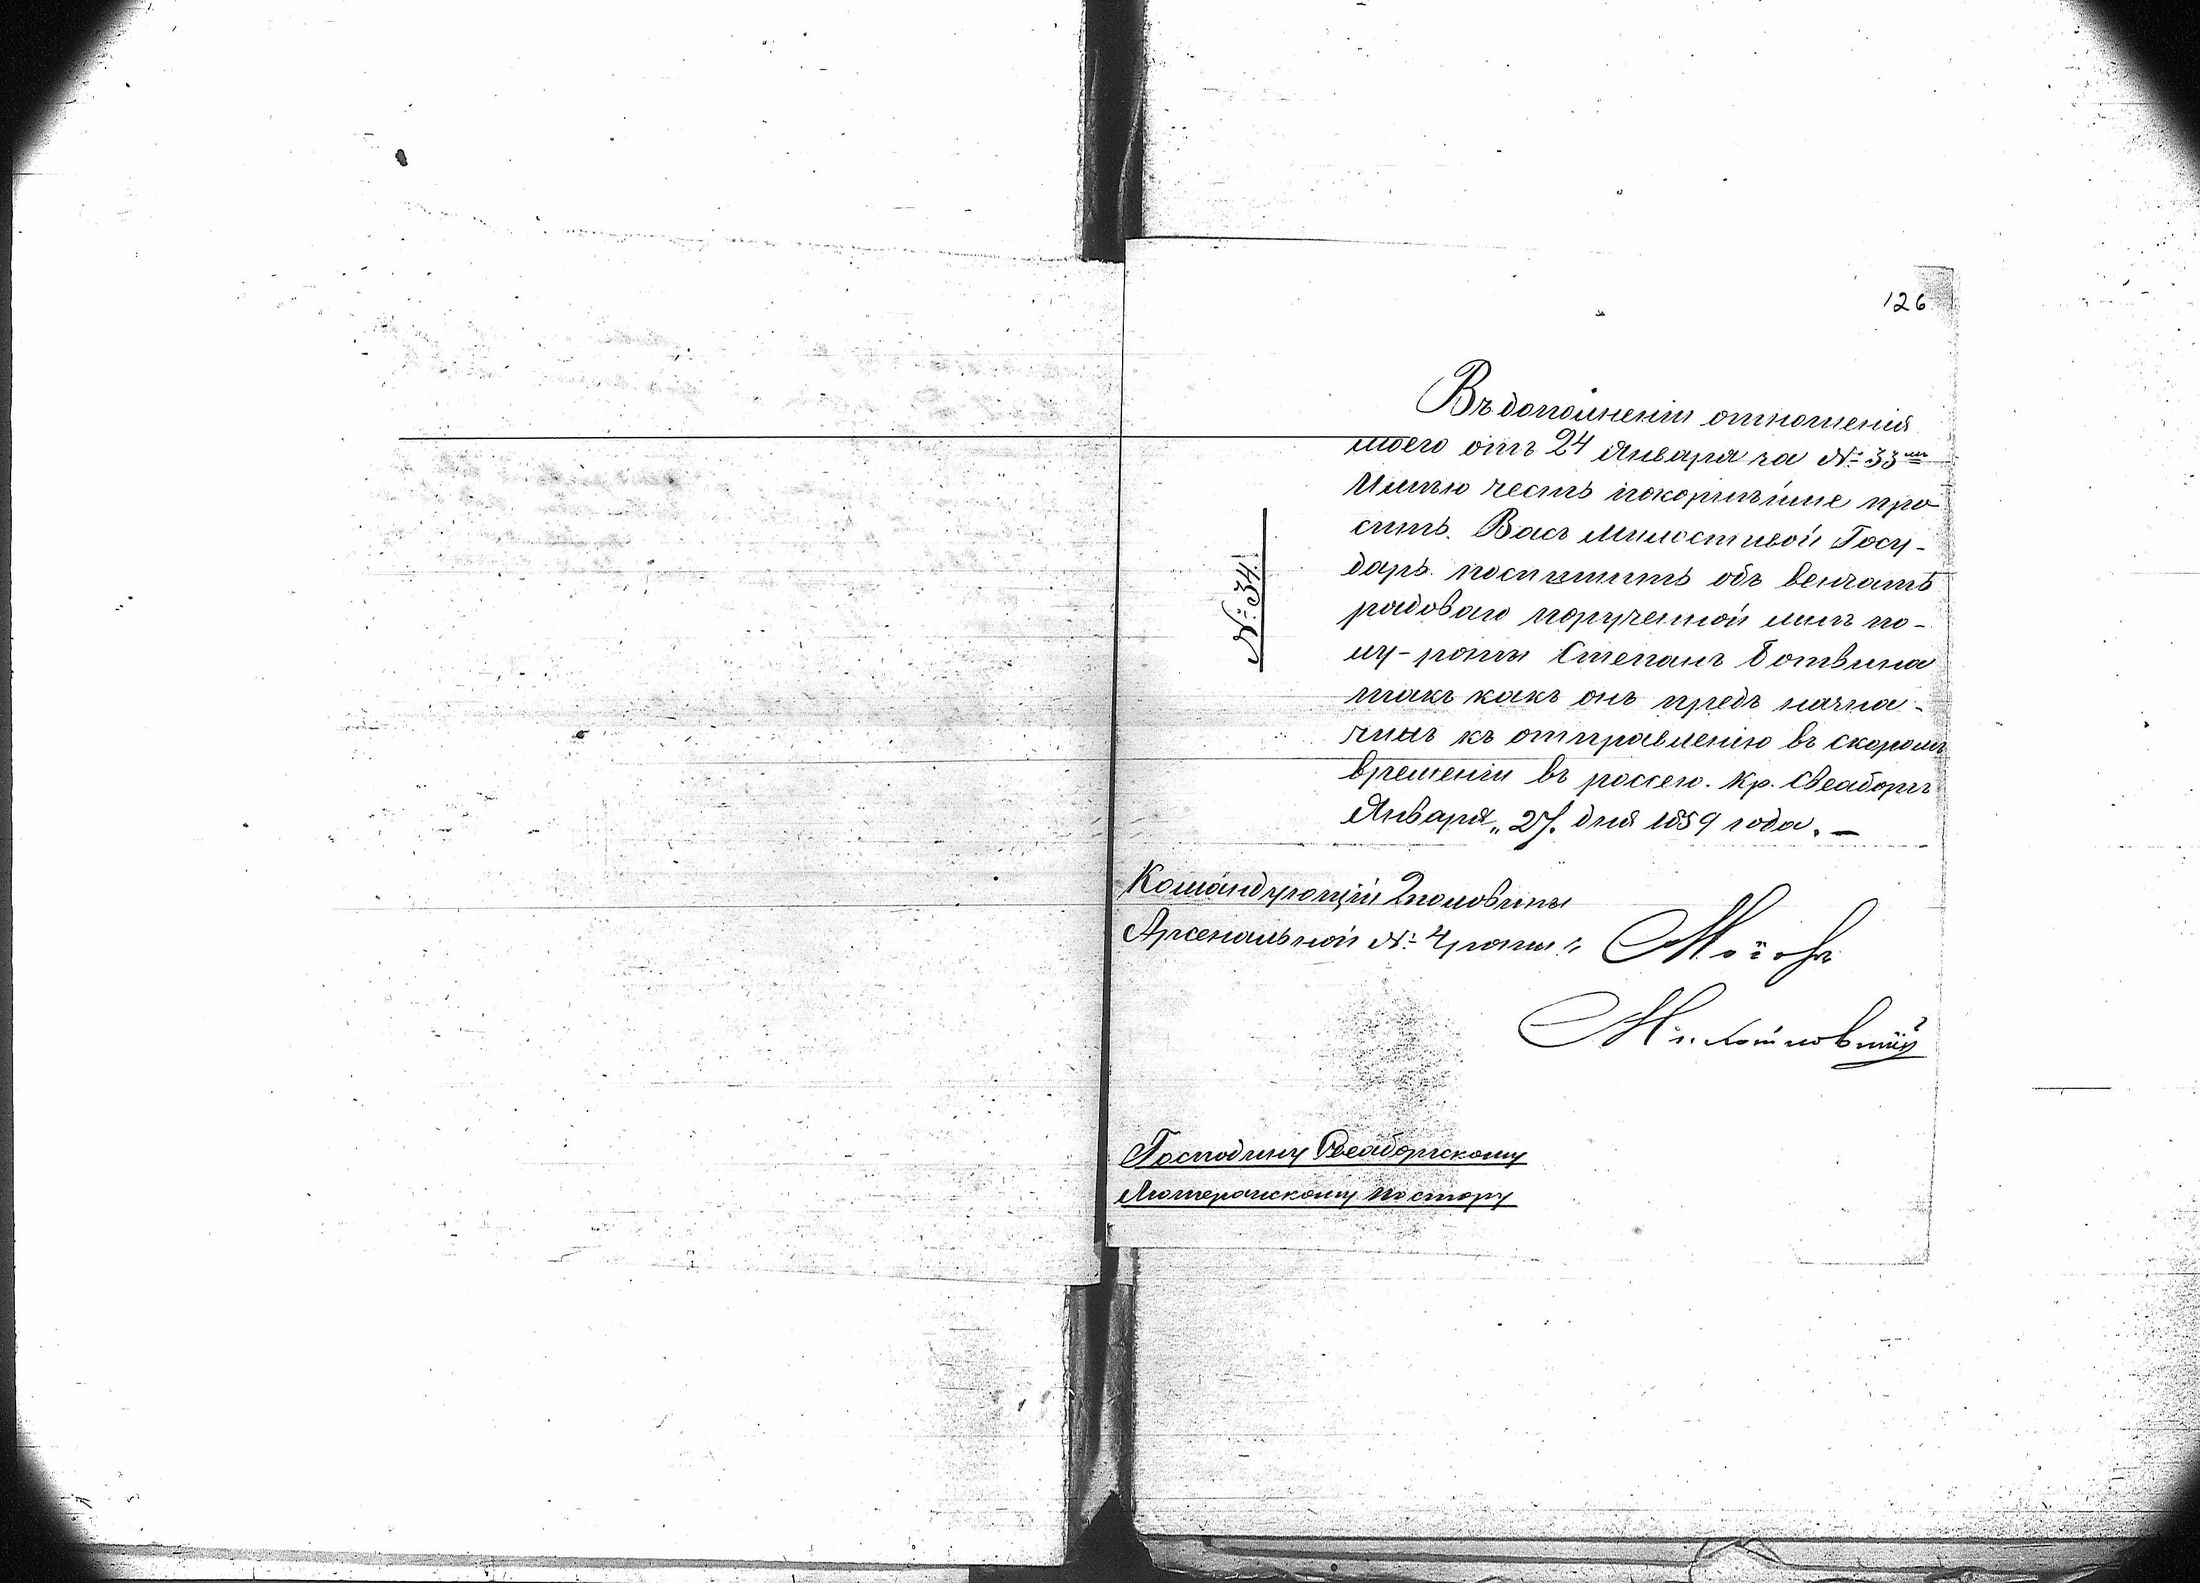 126
Въ дополненіи отношенія
моего отъ 24 Января за №: 33мъ
Имѣю честь покорнѣйше про
сить. Васъ Милостивой Госу-
дарь. поспѣшить объ венчать
радоваго порученной мнѣ по-
лу-роты Степанъ Ботвина
такъ какъ онъ предъ назна-
чинъ къ отправленію въ скоромъ
времении въ россею. Кр. Свеаборгъ
Января „27. дня 1859 года. —
№: 34.
Командующій 2 половины
Арсенальной №: 4 роты
Маіоръ
Господину Свеаборгскому
Лютеранскому пастору